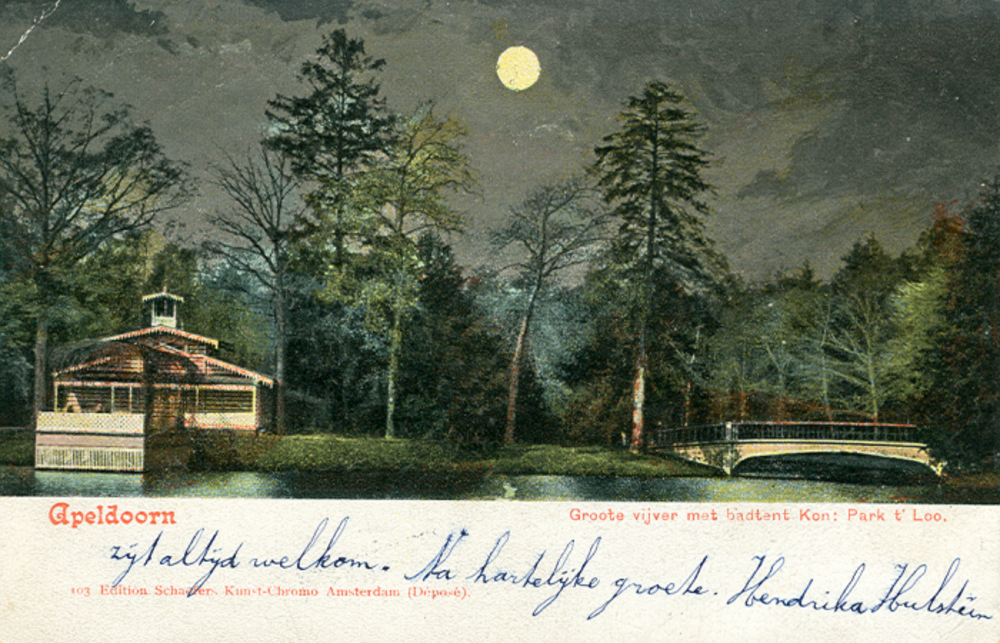 Apeldoorn
Groote vijver met badtent Kon: Park t' Loo.
zijt altijd welkom. Na hartelijke groete. Hendrika Hulstein
103 Edition Schaefers Kunst-Chromo Amsterdam (Déposé).